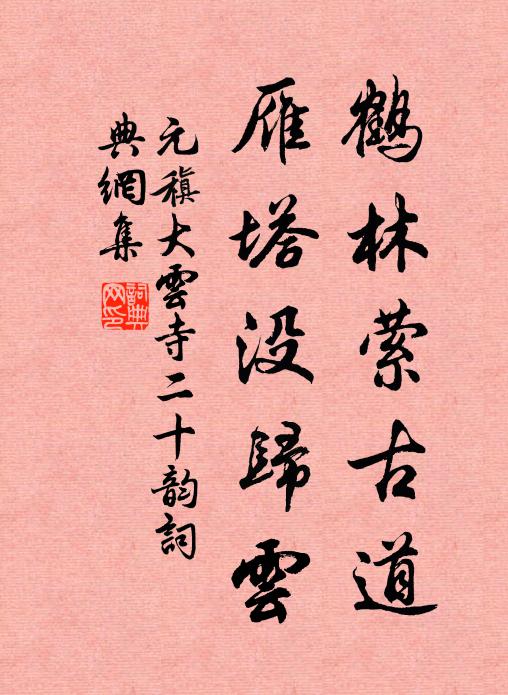 鶴林萦古道
雁塔没歸雲
元稹大雲寺二十韵詞
典網集
詞典
网印